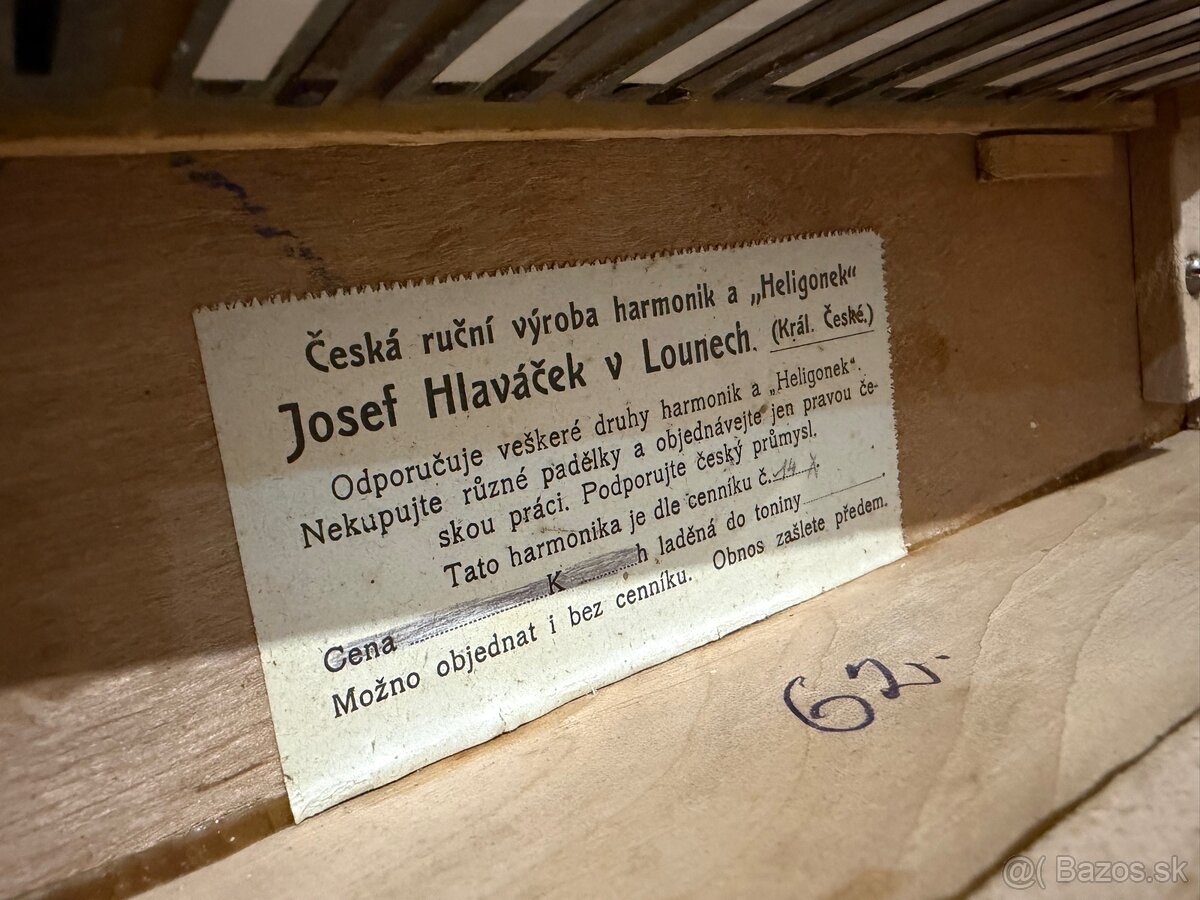 Česká ruční výroba harmonik a „Heligonek“
Josef Hlaváček v Lounech. (Král. České.)
Odporučuje veškeré druhy harmonik a „Heligonek“.
Nekupujte různé padělky a objednávejte jen pravou če-
skou práci. Podporujte český průmysl.
Tato harmonika je dle cenníku č. 14 A.
Cena K h laděná do toniny .
Možno objednat i bez cenníku. Obnos zašlete předem.
62
@( Bazos.sk